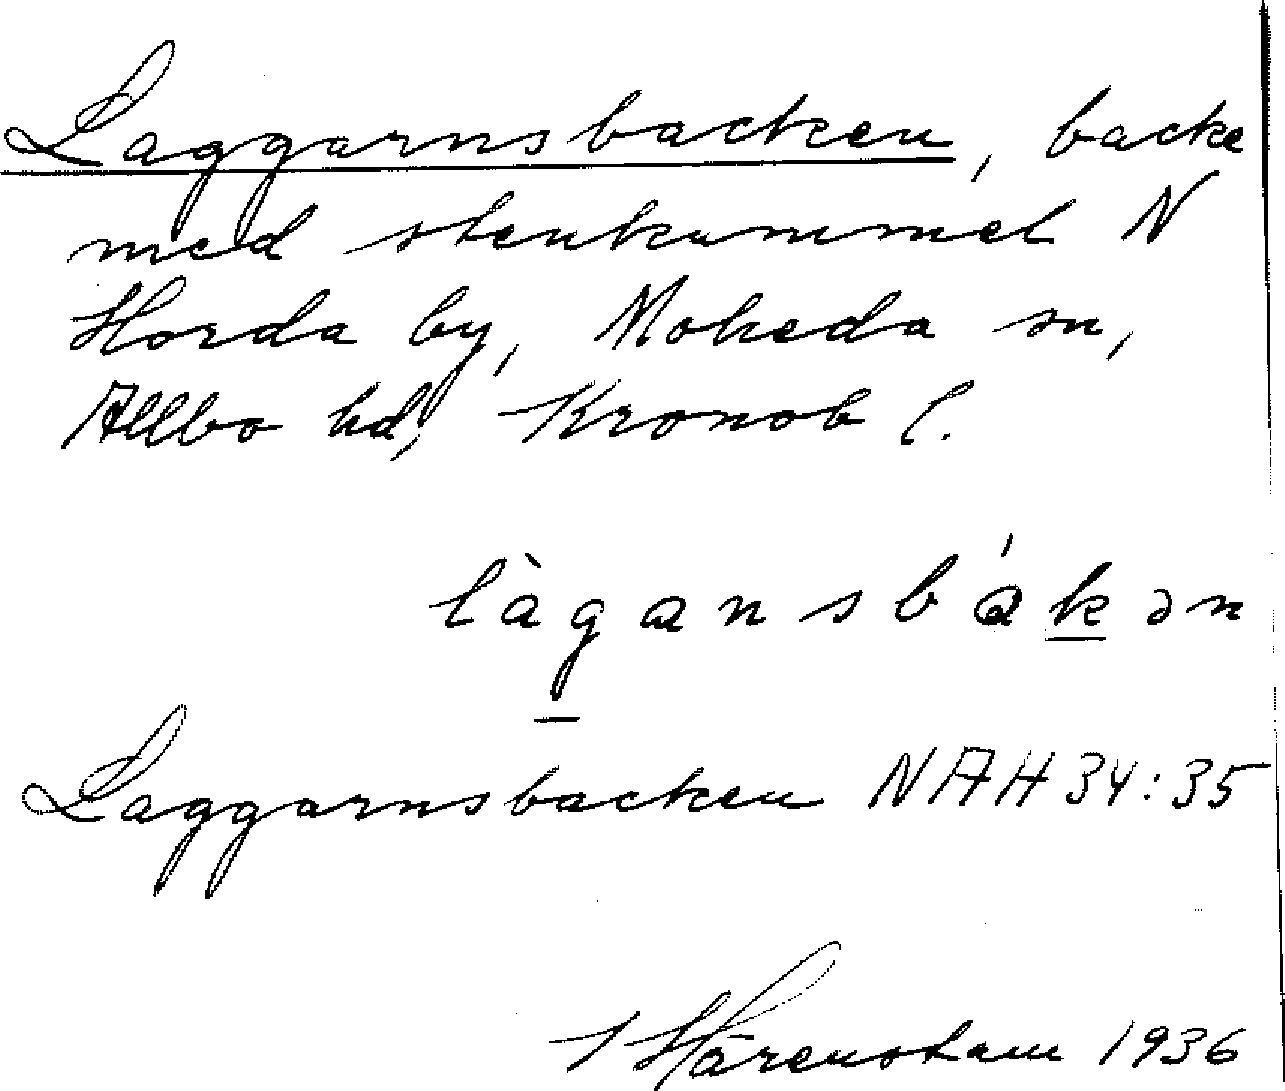 Laggarnsbacken, backe
med stenkummel N
Horda by, Moheda sn,
Allbo hd, Kronob l.
làgansbákən
Laggarnsbacken NAH 34:35
I Härenstam 1936